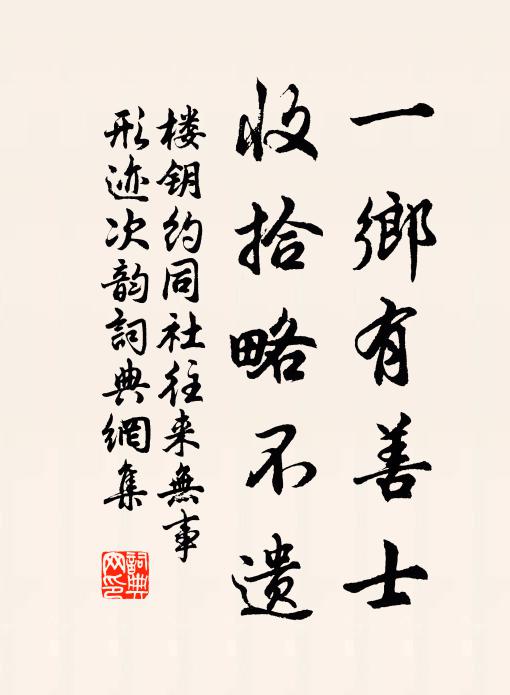 一鄉有善士
收拾略不遺
楼钥约同社往来無事
形迹次韵詞典網集
詞典網印